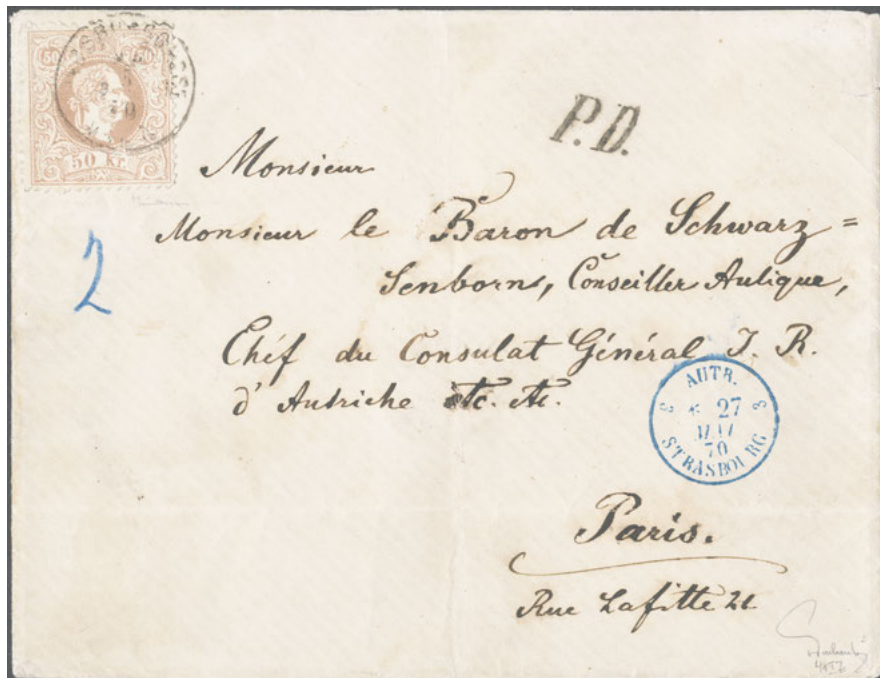 50 50
50 Kr.
P.D.
2
Monsieur
Monsieur le Baron de Schwarz=
Senborn, Conseiller Aulique,
Chéf du Consulat Général I. R.
d'Autriche etc. etc.
AUTR.
3 27 3
MAI
70
STRASBOURG
Paris.
Rue Lafitte 21